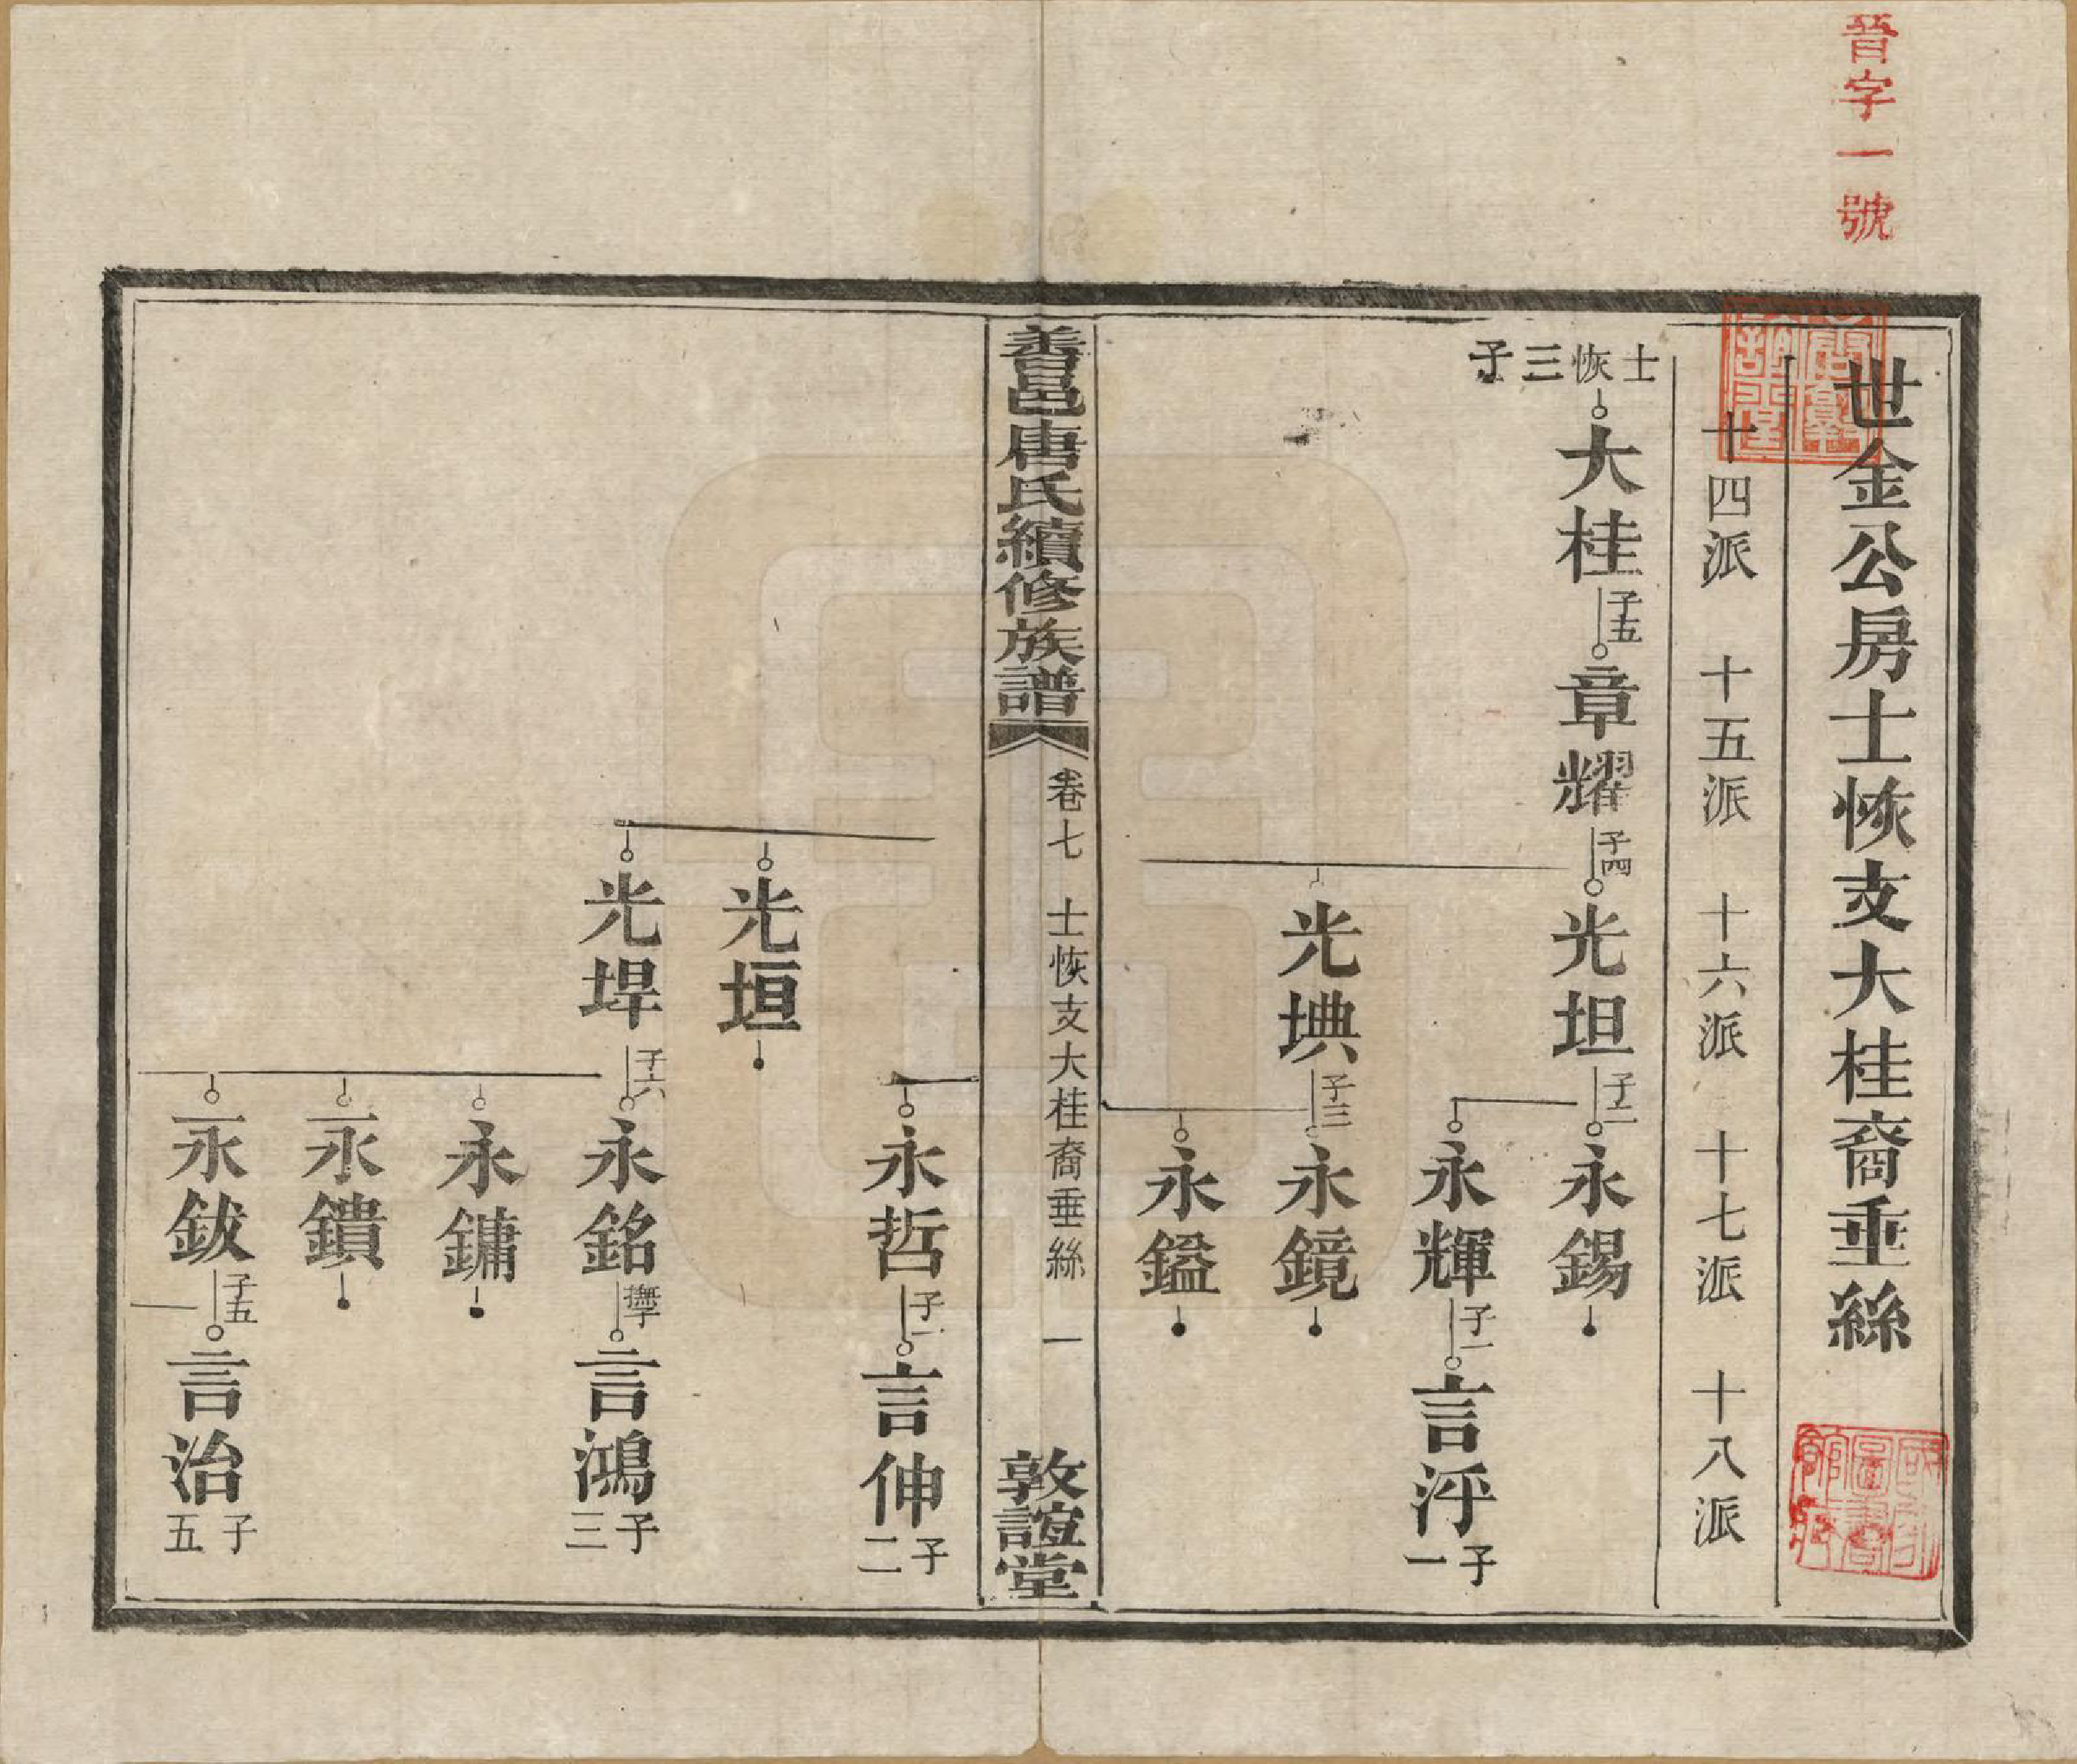 晉字一號
世金公房士恢支大桂裔垂絲
十四派 十五派 十六派 十七派 十八派
士恢三子
大桂 子五 章耀 子四 光坦 子二 永錫
永輝 子一 言泙 子一
光㙉 子三 永鏡
永鎰
善邑唐氏續修族譜 卷七 士恢支大桂裔垂絲 一 敦誼堂
永哲 子一 言伸 子二
光垣
光垾 子六 永銘 撫子 言鴻 子三
永鏞
永鐀
永鈸 子五 言治 子五